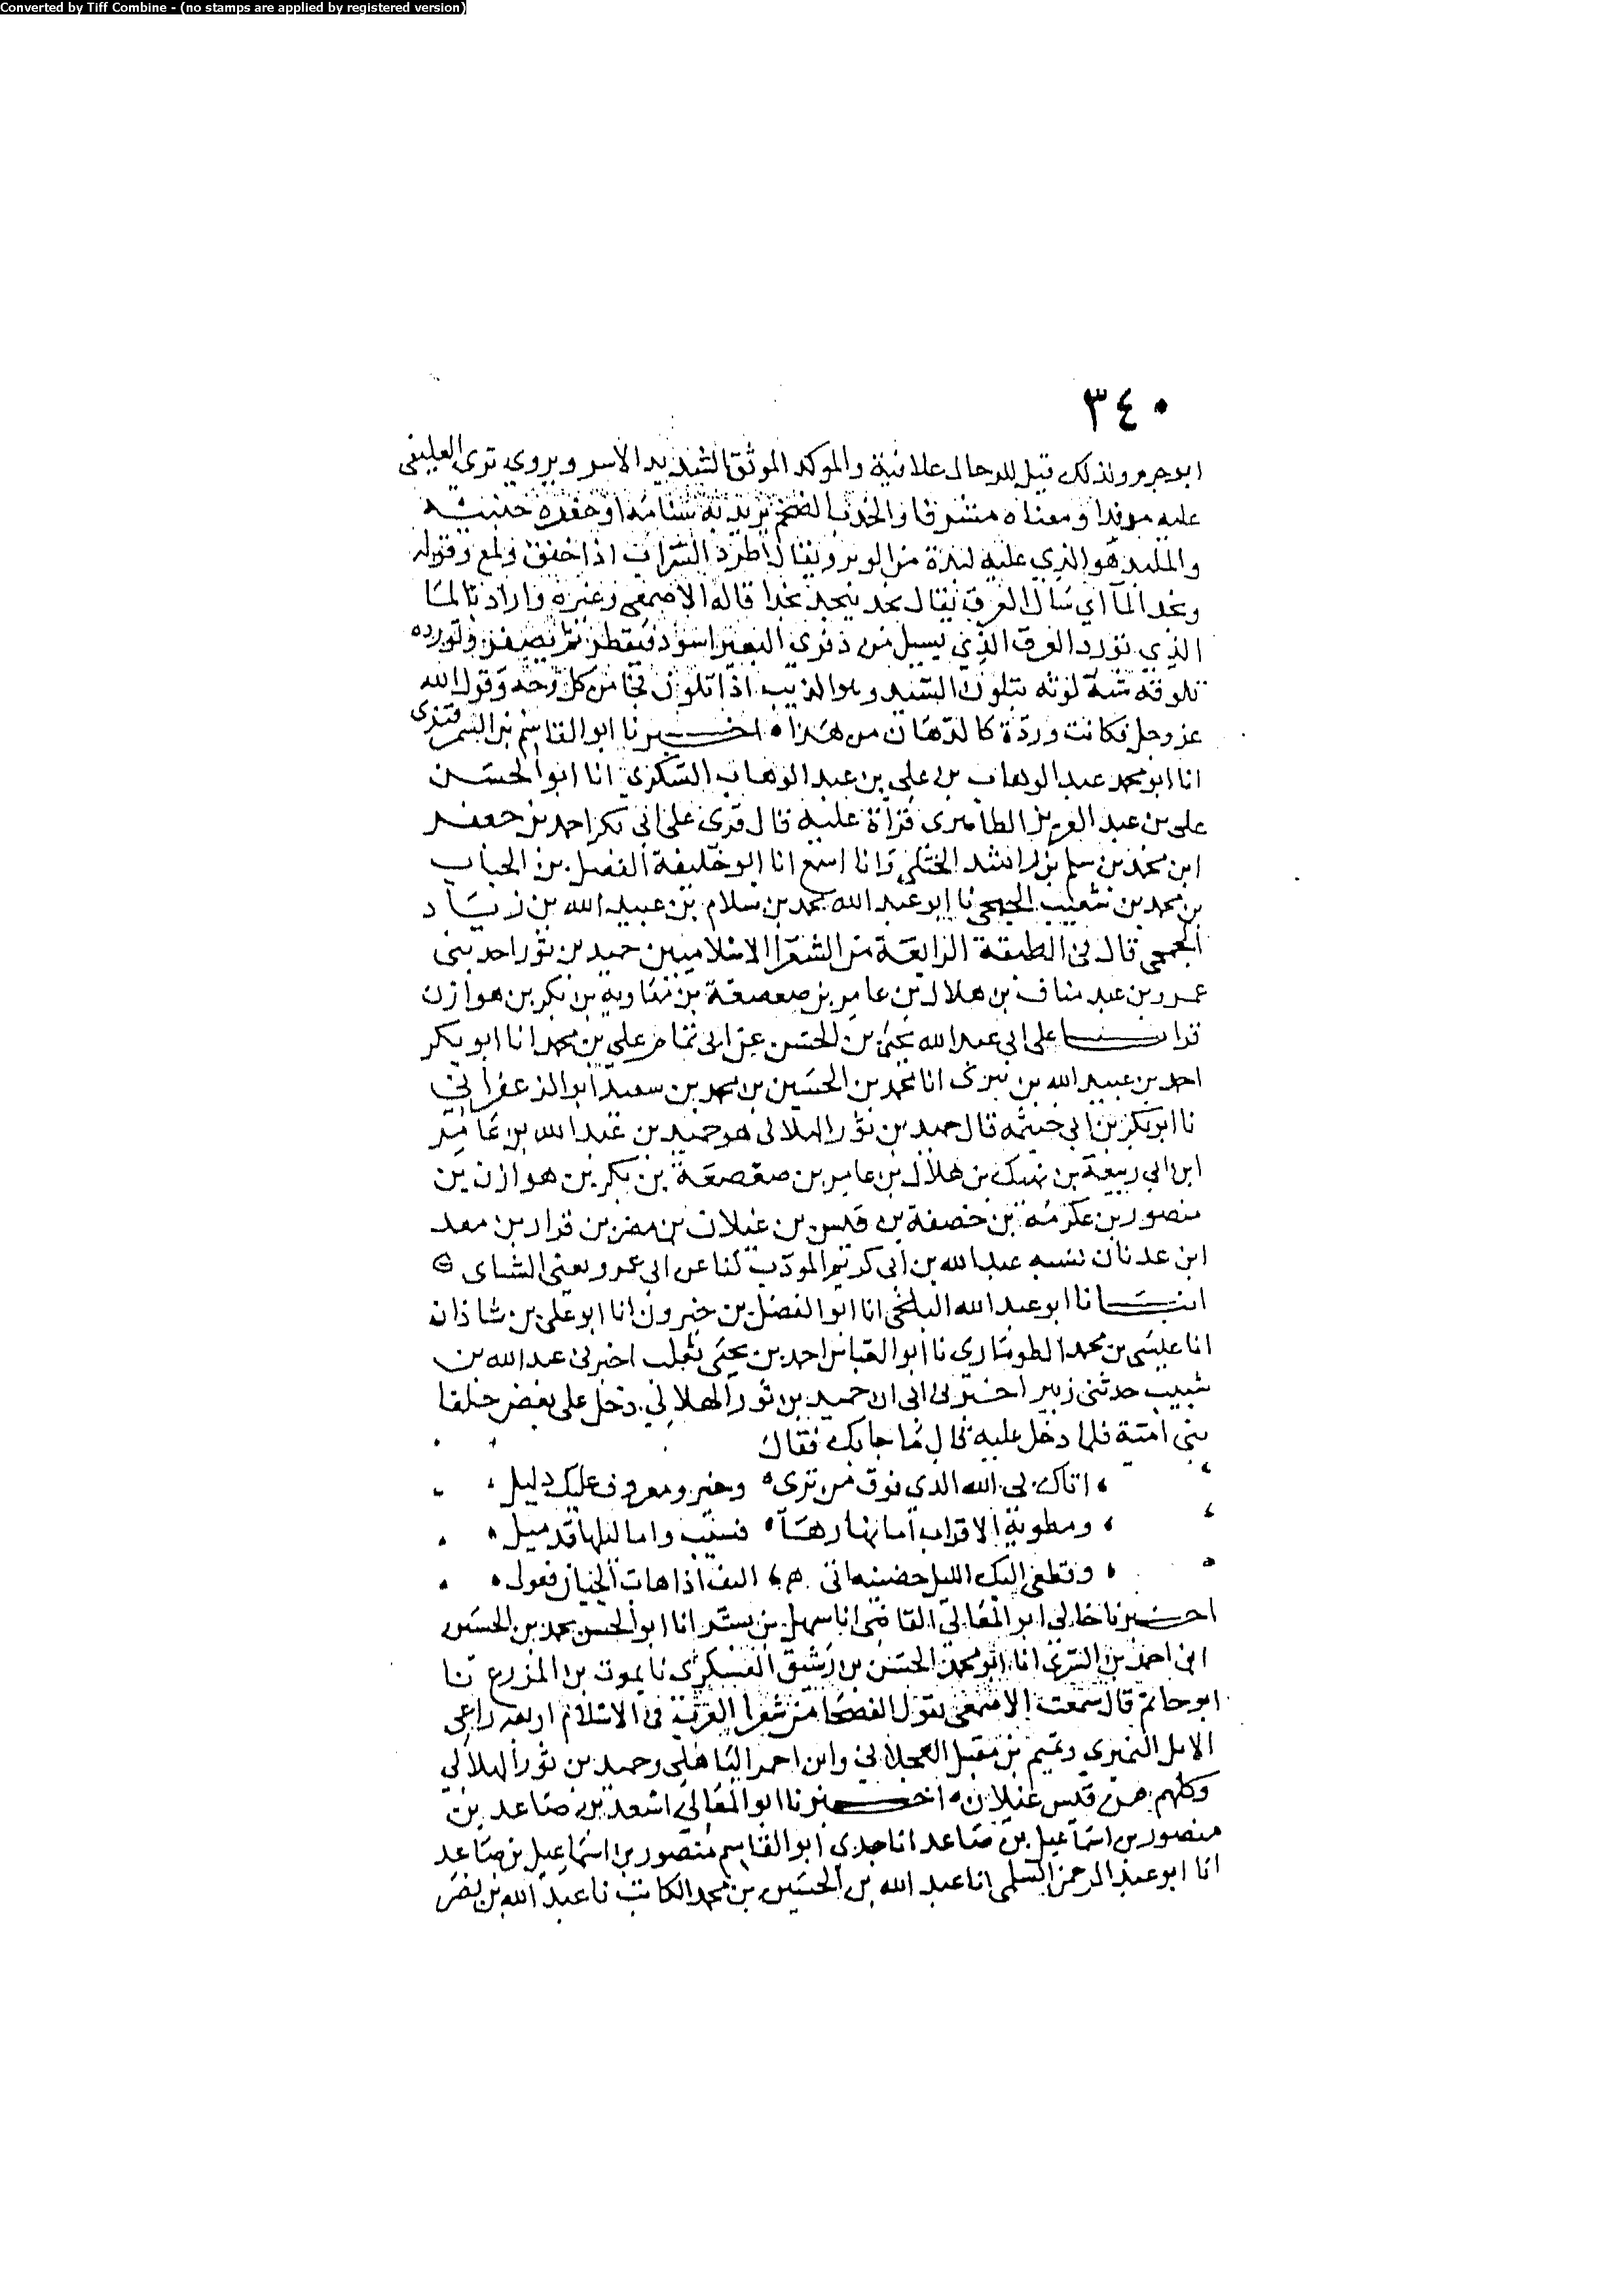 Converted by Tiff Combine - (no stamps are applied by registered version)
٣٤٠
ابو جرم ولذلك قيل للرحال علافية والموكد الموثق الشديد الاسر ويروي تري العليفي
عليه موفدا ومعناه مشرفا والخدب الضخم يريد به سنامه او جفرة جنبيه
والملبد هو الذي عليه لبدة من الوبر ويقال اطرد السراب اذا خفق ولمع وقوله
ونجد الما اي سال العرق يقال نجد ينجد نجدا قاله الاصمعي وغيره واراد بالما
الذي تورد العرق الذي يسيل من ذفرى البعير اسود فيقطر ثم يصفر وتورده
تلونه شبه لونه بتلون السيد وهو الذيب اذا تلون فجا من كل وجه وقول الله
عز وجل فكانت وردة كالدهان من هذا اخبرنا ابو القاسم بن السمرقندى
انا ابو محمد عبد الوهاب بن علي بن عبد الوهاب السكري انا ابو الحسن
على بن عبد العزيز الطاهرى قراة عليه قال قرى على ابي بكر احمد بن جعفر
ابن محمد بن سلم بن راشد الختلى وانا اسمع انا ابو خليفة الفضل بن الحباب
بن محمد بن شعيب الجمحى نا ابو عبد الله محمد بن سلام بن عبيد الله بن زياد
الجمحى قال في الطبقة الرابعة من الشعرا الاسلاميين حميد بن ثور احد بنى
عمرو بن عبد مناف بن هلال بن عامر بن صعصعة بن معاويه بن بكر بن هوازن
قرات على ابي عبد الله يحيى بن الحسن عن ابى تمام علي بن محمد انا ابو بكر
احمد بن عبيد الله بن بيرى انا محمد بن الحسين بن محمد بن سعيد ابو الزعفراني
نا ابو بكر بن ابي خيثمه قال حميد بن ثور الهلالى هو حميد بن عبد الله بن عامر
ابن ابي ربيعة بن نهيك بن هلال بن عامر بن صعصعة بن بكر بن هوازن بن
منصور بن عكرمه بن خصفة بن قيس بن غيلان بن مضر بن نزار بن معد
ابن عدنان نسبه عبد الله بن ابى كريم المودب لنا عن ابي عمرو يعني الشيبانى
انبانا ابو عبد الله البلخى انا ابو الفضل بن خيرون انا ابو على بن شاذان
انا عيسى بن محمد الطومارى نا ابو العباس احمد بن يحيى ثعلب اخبرنى عبد الله بن
شبيب حدثنى زبير اخبرنى ابى ان حميد بن ثور الهلالي دخل على بعض خلفا
بنى امية فلما دخل عليه قال ما جا بك فقال
اتاك بى الله الذى فوق من ترى وخير ومعروف عليك دليل
ومطوية الاقراب اما نهارها فسبت واما ليلها فذميل
وتطفى اليك الليل حضنيه انى اليف اذا هاب الجبان فعول
اخبرنا خالى ابو المعالى القاضى انا سهل بن بشر انا ابو الحسن محمد بن الحسين
ابن احمد بن السرى انا ابو محمد الحسن بن رشيق العسكرى نا يموت بن المزرع نا
ابو حاتم قال سمعت الاصمعى يقول الفصحا من شعرا العرب فى الاسلام اربعه راعى
الابل النميري وتميم بن مقبل العجلاني وابن احمر الباهلى وحميد بن ثور الهلالي
وكلهم من قيس غيلان اخبرنا ابو المعالي اسعد بن صاعد بن
منصور بن اسماعيل بن صاعد انا جدى ابو القاسم منصور بن اسماعيل بن صاعد
انا ابو عبد الرحمن السلمى انا عبد الله بن الحسين بن محمد الكاتب نا عبد الله بن نصر